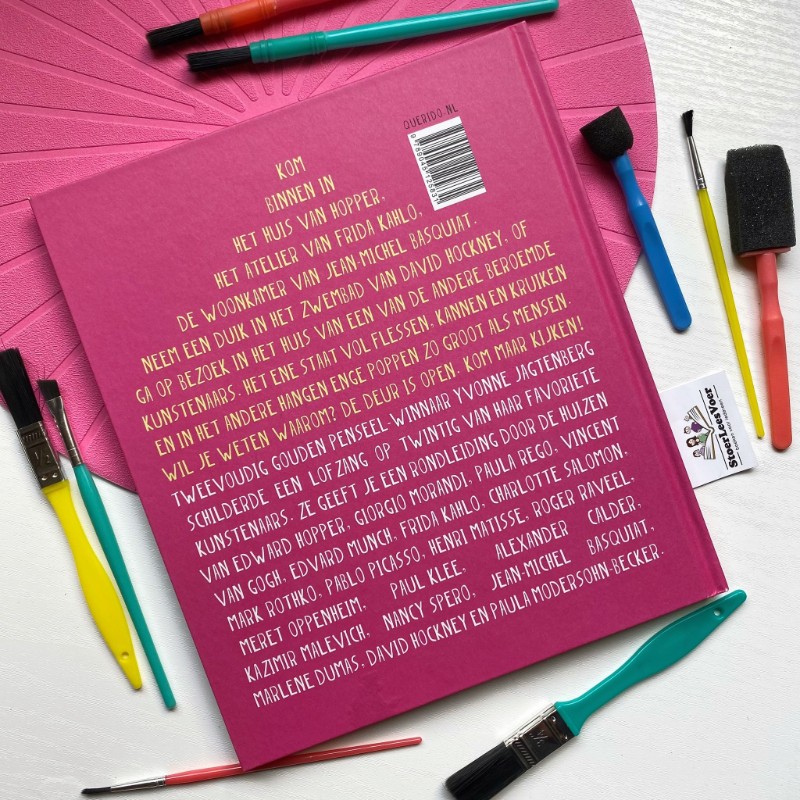 QUERIDO.NL
KOM
BINNEN IN
HET HUIS VAN HOPPER,
HET ATELIER VAN FRIDA KAHLO,
DE WOONKAMER VAN JEAN-MICHEL BASQUIAT.
NEEM EEN DUIK IN HET ZWEMBAD VAN DAVID HOCKNEY, OF
GA OP BEZOEK IN HET HUIS VAN EEN VAN DE ANDERE BEROEMDE
KUNSTENAARS. HET ENE STAAT VOL FLESSEN, KANNEN EN KRUIKEN
EN IN HET ANDERE HANGEN ENGE POPPEN ZO GROOT ALS MENSEN.
WIL JE WETEN WAAROM? DE DEUR IS OPEN. KOM MAAR KIJKEN!
TWEEVOUDIG GOUDEN PENSEEL-WINNAAR YVONNE JAGTENBERG
SCHILDERDE EEN LOFZANG OP TWINTIG VAN HAAR FAVORIETE
KUNSTENAARS. ZE GEEFT JE EEN RONDLEIDING DOOR DE HUIZEN
VAN EDWARD HOPPER, GIORGIO MORANDI, PAULA REGO, VINCENT
VAN GOGH, EDVARD MUNCH, FRIDA KAHLO, CHARLOTTE SALOMON,
MARK ROTHKO, PABLO PICASSO, HENRI MATISSE, ROGER RAVEEL,
MERET OPPENHEIM, PAUL KLEE, ALEXANDER CALDER,
KAZIMIR MALEVICH, NANCY SPERO, JEAN-MICHEL BASQUIAT,
MARLENE DUMAS, DAVID HOCKNEY EN PAULA MODERSOHN-BECKER.
StoerLeesVoer